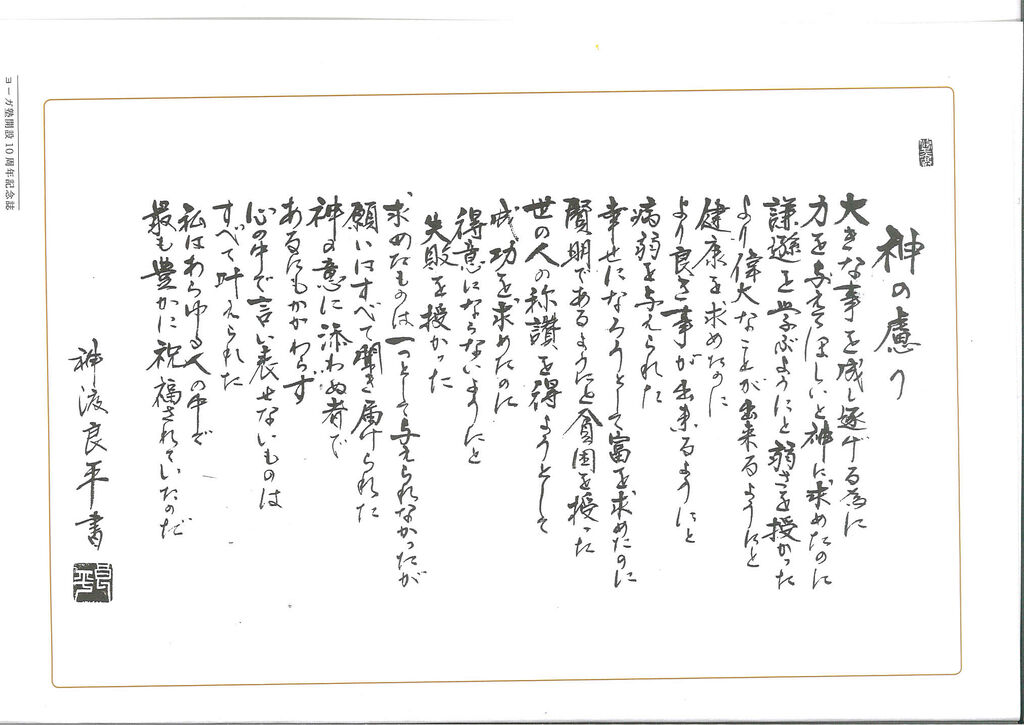 神の慮り
大きな事を成し遂げる為に
力を与えてほしいと神に求めたのに
謙遜を学ぶようにと弱さを授かった
より偉大なことが出来るようにと
健康を求めたのに
より良き事が出来るようにと
病弱を与えられた
幸せになろうとして富を求めたのに
賢明であるようにと貧困を授った
世の人の称讃を得ようとして
成功を求めたのに
得意にならないようにと
失敗を授かった
求めたものは一つとして与えられなかったが
願いはすべて聞き届けられた
神の意に添わぬ者で
あるにもかかわらず
心の中で言い表せないものは
すべて叶えられた
私はあらゆる人の中で
最も豊かに祝福されていたのだ
神渡良平書
良平
ヨーガ塾開設10周年記念誌